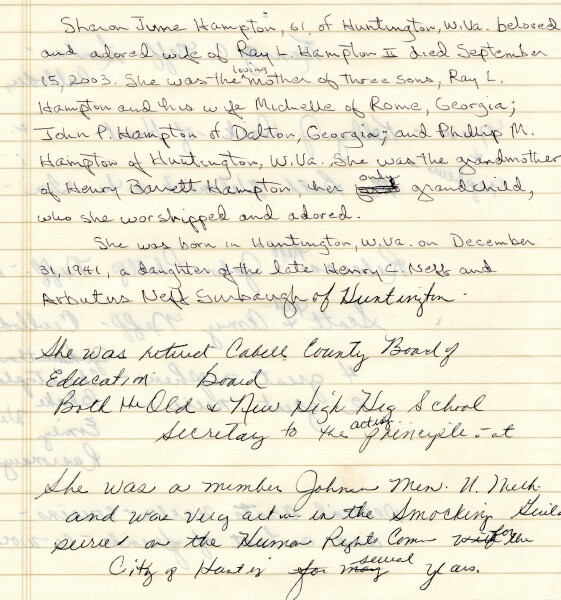 Sharon June Hampton, 61, of Huntington, W.Va. beloved
and adored wife of Ray L. Hampton II died September
15, 2003. She was the loving mother of three sons, Ray L.
Hampton and his wife Michelle of Rome, Georgia;
John P. Hampton of Dalton, Georgia; and Phillip M.
Hampton of Huntington, W.Va. She was the grandmother
of Henry Barrett Hampton her only grandchild,
who she worshipped and adored.
She was born in Huntington, W.Va. on December
31, 1941, a daughter of the late Henry C. Neff and
Arbutus Neff Surbaugh of Huntington.
She was retired Cabell County Board of
Education Board
Both the Old & New High School
Secretary to the acting principle - at
She was a member Johnson Mem. U. Meth.
and was very active in the Smocking Guild
served on the Human Rights Comm for the
City of several years.